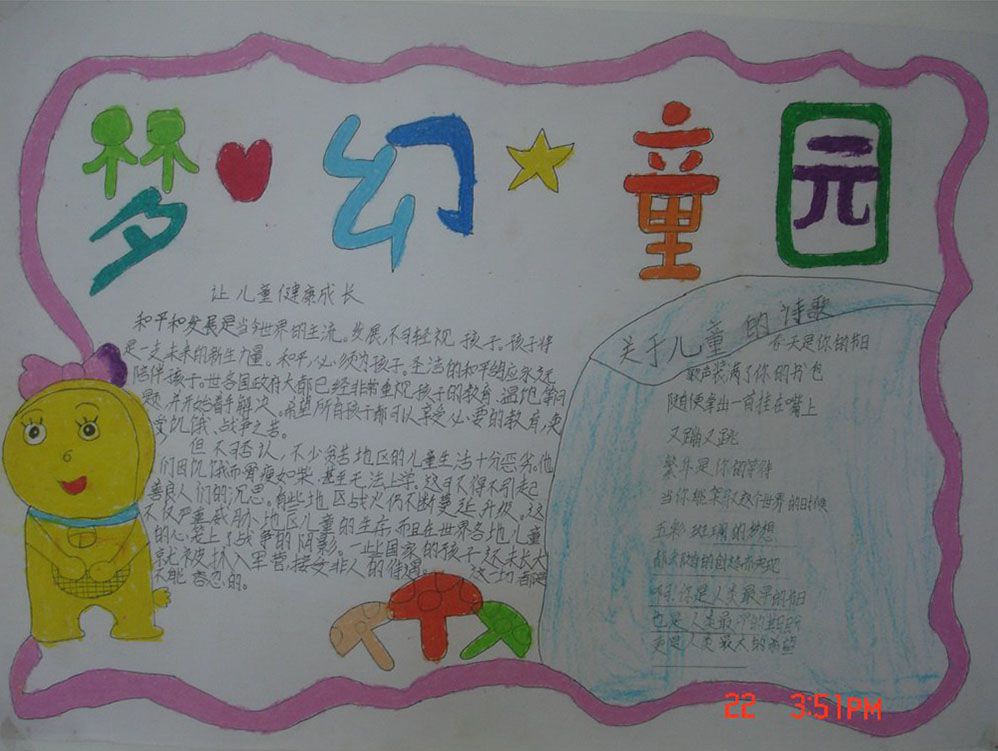 梦幻童园
让儿童健康成长
和平和发展是当今世界的主流。发展,不可轻视孩子。孩子将
是一支未来的新生力量。和平,必须为孩子。圣洁的和平鸽应永远
陪伴孩子。世各国政府大都已经非常重视孩子的教育、温饱等问
题,并开始着手解决。希望所有孩子都可以享受必要的教育,免
受饥饿、战争之苦。
但不可否认,不少贫苦地区的儿童生活十分恶劣。他
们因饥饿而骨瘦如柴,甚至无法上学。这不得不引起
善良人们的沉思。有些地区战火仍不断蔓延、升级。这
不仅严重威胁地区儿童的生存,而且在世界各地儿童
的心笼上了战争的阴影。一些国家的孩子还未长大
就被抓入军营,接受非人的待遇。这一切都是
不能容忍的。
关于儿童的诗歌
今天是你的节日
歌声装满了你的书包
随便拿出一首挂在嘴上
又蹦又跳
繁华是你的等待
当你挑某天这个世界的时候
五彩斑斓的梦想
都因的创造而实现
啊,你是人类最早的节日
也是人类最的
更是人类最大的希望
22 3:51PM